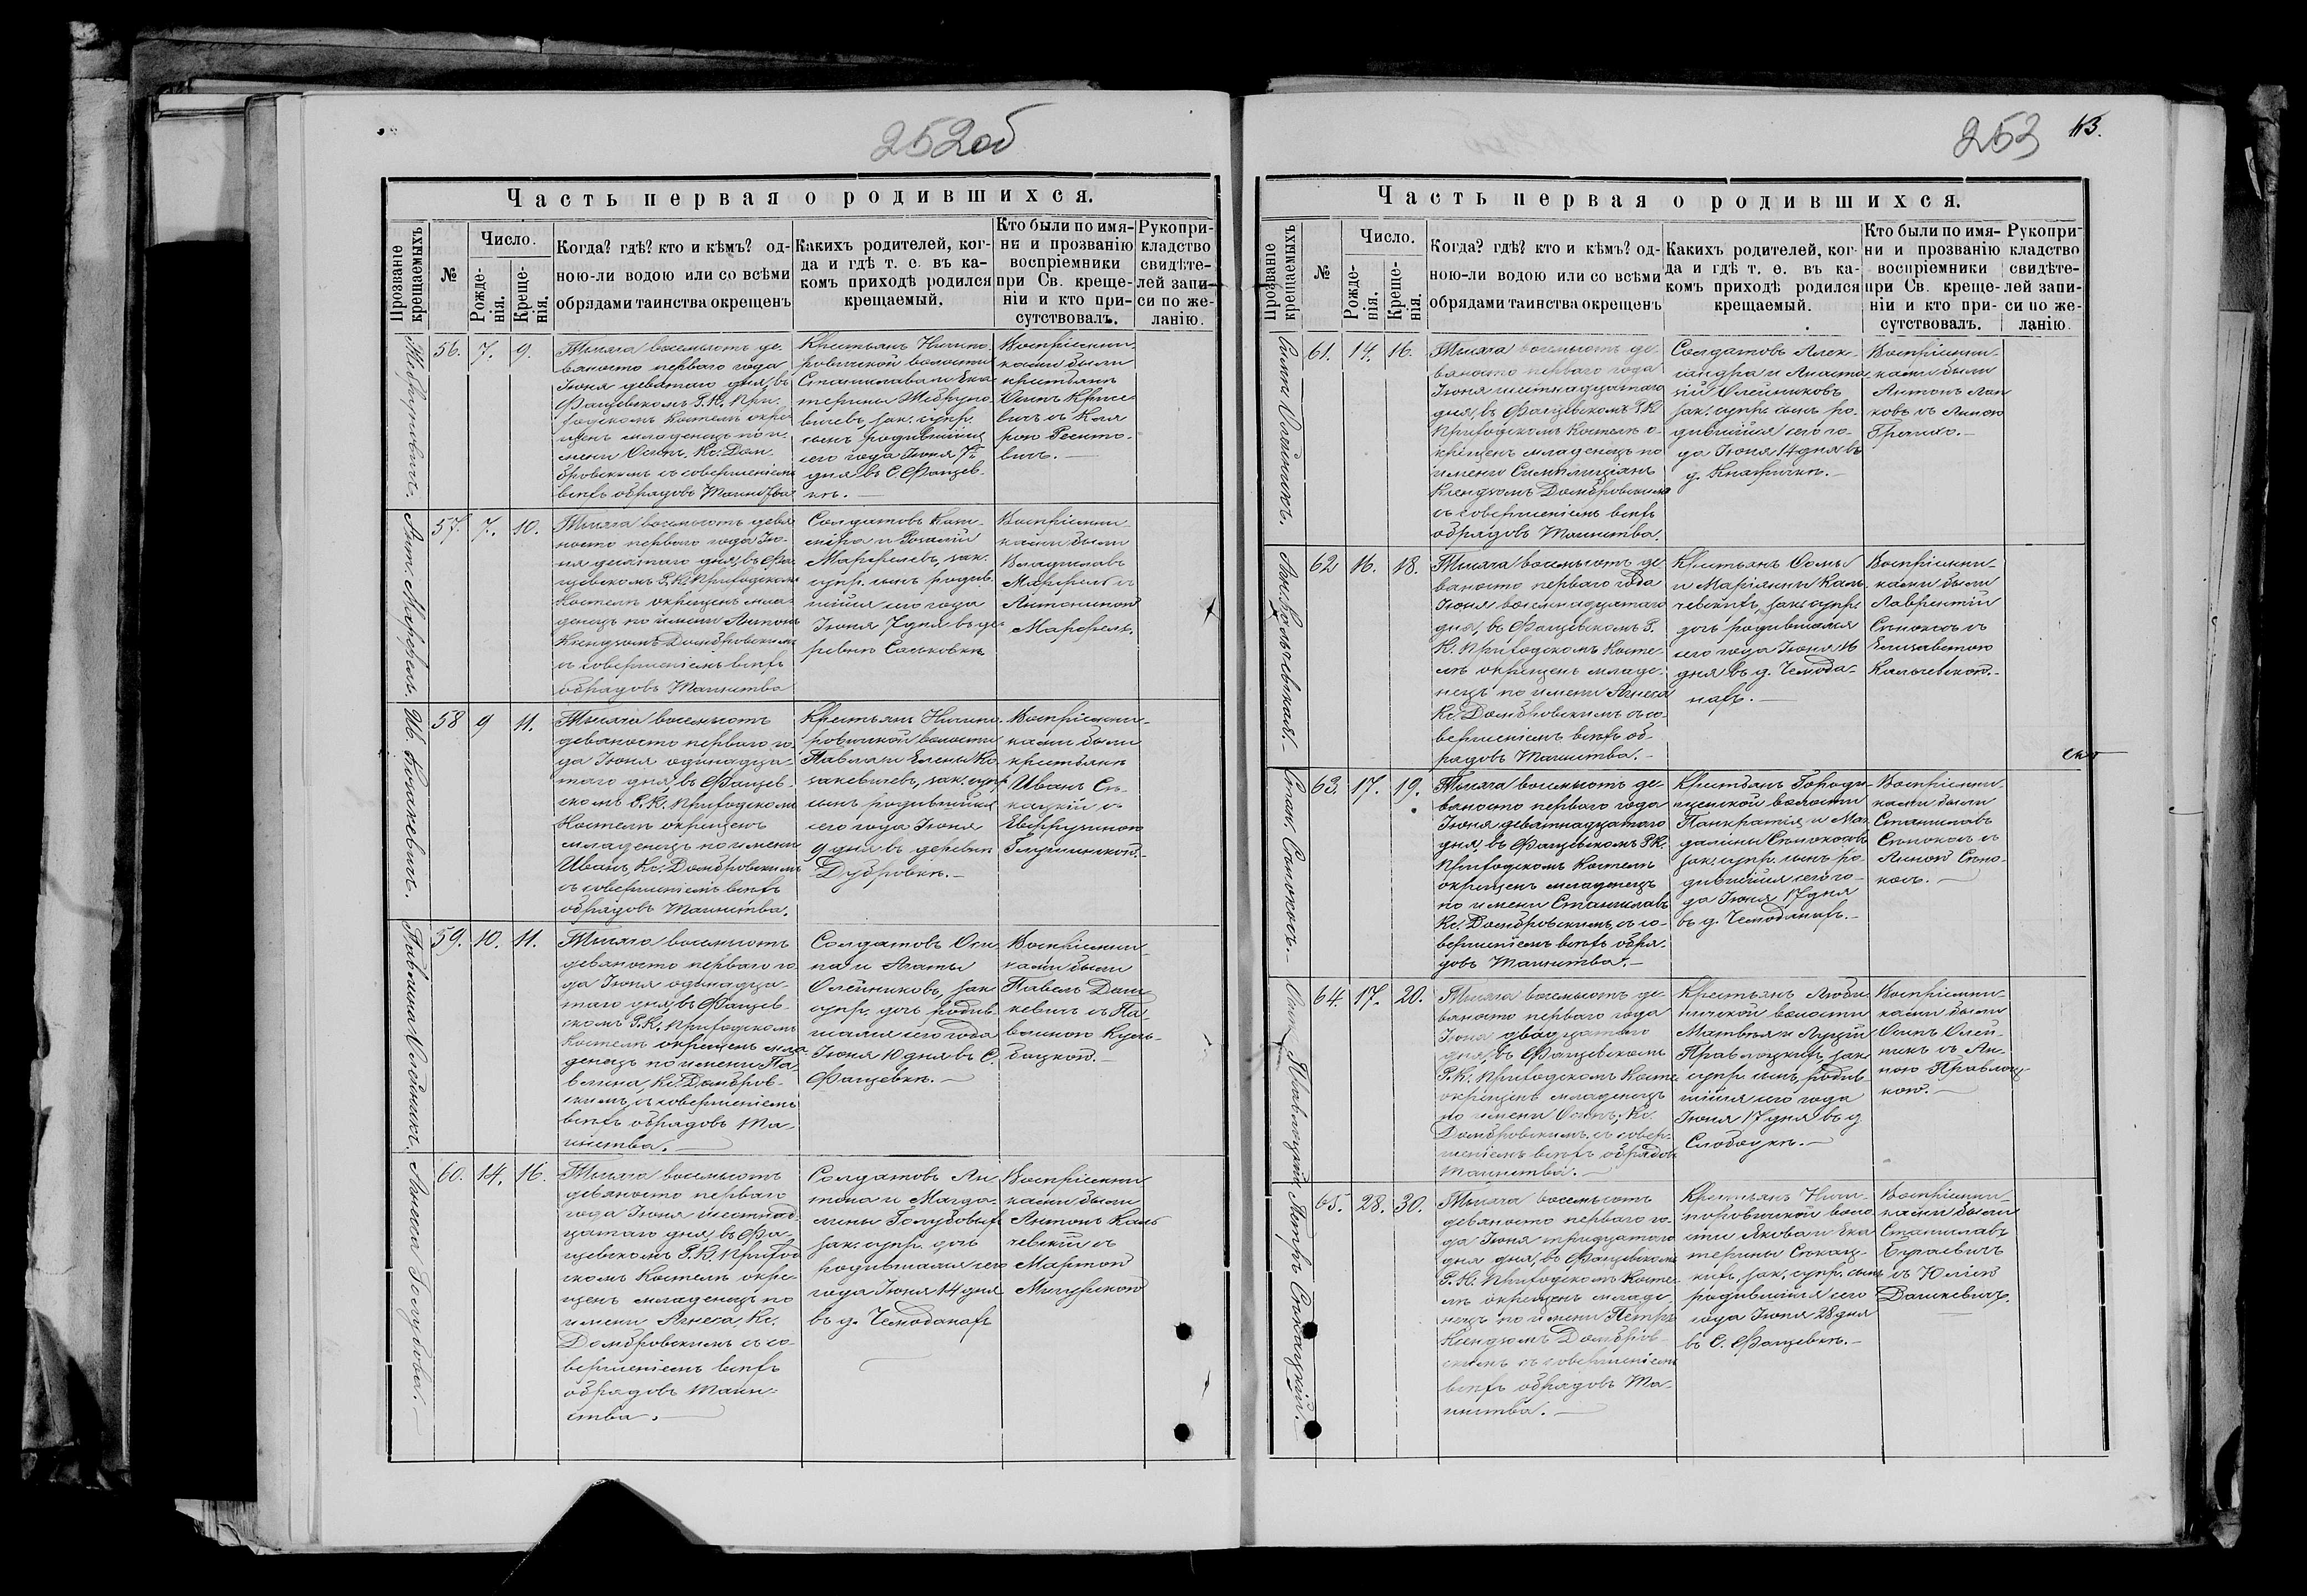 252об
Часть первая о родившихся.
Прозваніе крещаемыхъ
№
Число.
Рожде-
нія.
Креще-
нія.
Когда? гдѣ? кто и кѣмъ? од-
ною-ли водою или со всѣми
обрядами таинства окрещенъ
Какихъ родителей, ког-
да и гдѣ т. е. въ ка-
комъ приходѣ родился
крещаемый.
Кто были по имя-
ни и прозванію
воспріемники
при Св. креще-
ніи и кто при-
сутствовалъ.
Рукопри-
кладство
свидѣте-
лей запи-
си по же-
ланію.
56. 7. 9.
Тысяча восемьсотъ де-
вяносто перваго года
Іюня девятаго дня, въ
Фащевскомъ Р. К. При-
ходскомъ Костелѣ окре-
щенъ младенецъ по и-
мени Осипъ, Кс. Дом-
бровскимъ съ совершеніемъ
всѣхъ обрядовъ Таинства
Крестьянъ
волости
Станислава и Ека-
терины
зак. супр.
сынъ родившійся
сего года Іюня 7го
дня въ С. Фащев-
кѣ. —
Воспріемни-
ками были
крестьяне
Осипъ
вичъ съ
вичъ. —
Ант. Марфель.
57. 7. 10.
Тысяча восемьсотъ девя-
носто перваго года Ію-
ня десятаго дня, въ Фа-
щевскомъ Р. К. Приходскомъ
Костелѣ окрещенъ мла-
денецъ по имени Антонъ
Ксендзомъ Домбровскимъ
съ совершеніемъ всѣхъ
обрядовъ Таинства
Солдатовъ Кази-
міра и Розаліи
Марфелевъ, зак.
супр. сынъ родив-
шійся сего года
Іюня 7 дня въ де-
ревнѣ Саськовкѣ
Воспріемни-
ками были
Владиславъ
Марфель съ
Антониной
Марфель.
Ив. Козакевичъ.
58 9 11.
Тысяча восемьсотъ
девяносто перваго го-
да Іюня одинадца-
таго дня, въ Фащев-
скомъ Р. К. Приходскомъ
Костелѣ окрещенъ
младенецъ по имени
Иванъ, Кс. Домбровскимъ
съ совершеніемъ всѣхъ
обрядовъ Таинства.
Крестьянъ
волости
Павла и Елены Ко-
закевичевъ, зак. супр.
сынъ родившійся
сего года Іюня
9 дня въ деревнѣ
Дубровкѣ. —
Воспріемни-
ками были
крестьяне
Иванъ
съ
Евфрузиною
Павлина Олейникъ.
59. 10. 11.
Тысяча восемьсотъ
девяносто перваго го-
да Іюня одинадца-
таго дня, въ Фащев-
скомъ Р. К. Приходскомъ
Костелѣ окрещенъ мла-
денецъ по имени Па-
влина Кс. Домбров-
скимъ, съ совершеніемъ
всѣхъ обрядовъ Та-
инства. —
Солдатовъ Оси-
па и Агаты
Олейниковъ, зак.
супр. дочь родив-
шаяся сего года
Іюня 10 дня въ С.
Фащевкѣ. —
Воспріемни-
ками были
Павелъ Даш-
кевичъ съ Па-
влиною
Агнеса Голубова. —
60. 14. 16.
Тысяча восемьсотъ
девяносто перваго
года Іюня шестнад-
цатаго дня, въ Фа-
щевскомъ Р. К. Приход-
скомъ Костелѣ окре-
щенъ младенецъ по
имени Агнеса, Кс.
Домбровскимъ съ со-
вершеніемъ всѣхъ
обрядовъ Таин-
ства. —
Солдатовъ Ан-
тона и Магда-
лины Голубовыхъ
зак. супр. дочь
родившаяся сего
года Іюня 14 дня
въ д. Чемоданахъ
Воспріемни-
ками были
Антонъ Каль-
чевскій съ
Мартой
253 13.
Часть первая о родившихся.
Прозваніе крещаемыхъ
№
Число.
Рожде-
нія.
Креще-
нія.
Когда? гдѣ? кто и кѣмъ? од-
ною-ли водою или со всѣми
обрядами таинства окрещенъ
Какихъ родителей, ког-
да и гдѣ т. е. въ ка-
комъ приходѣ родился
крещаемый.
Кто были по имя-
ни и прозванію
воспріемники
при Св. креще-
ніи и кто при-
сутствовалъ.
Рукопри-
кладство
свидѣте-
лей запи-
си по же-
ланію.
Олейникъ.
61. 14. 16.
Тысяча восемьсотъ де-
вяносто перваго года
Іюня шестнадцатаго
дня, въ Фащевскомъ Р. К.
Приходскомъ Костелѣ о-
крещенъ младенецъ по
имени Симплиціанъ
Ксендзомъ Домбровскимъ
съ совершеніемъ всѣхъ
обрядовъ Таинства.
Солдатовъ Алек-
сандра и Анаста-
сіи Олейниковъ
зак. супр. сынъ ро-
дившійся сего го-
да Іюня 14 дня въ
д. —
Воспріемни-
ками были
Антонъ
съ Анною
62 16. 18.
Тысяча восемьсотъ де-
вяносто перваго года
Іюня восемнадцатаго
дня, въ Фащевскомъ Р.
К. Приходскомъ Косте-
лѣ окрещенъ младе-
нецъ по имени Агнеса
Кс. Домбровскимъ съ со-
вершеніемъ всѣхъ об-
рядовъ Таинства. —
Крестьянъ Ѳомы
и Маріянны Каль-
чевскихъ, зак. супр.
дочь родившаяся
сего года Іюня 16
дня въ д. Чемода-
нахъ. —
Воспріемни-
ками были
Лаврентій
Сѣнокосъ съ
Елизаветою
Кальчевскою. —
Стан. Сѣнокосъ. —
63. 17. 19.
Тысяча восемьсотъ де-
вяносто перваго года
Іюня девятнадцатаго
дня, въ Фащевскомъ Р. К.
Приходскомъ Костелѣ
окрещенъ младенецъ
по имени Станиславъ
Кс. Домбровскимъ, съ со-
вершеніемъ всѣхъ обря-
довъ Таинства. —
Крестьянъ Городи-
щенской волости
Панкратія и Маг-
далины Сѣнокосовъ
зак. супр. сынъ ро-
дившійся сего го-
да Іюня 17 дня
въ д. Чемоданахъ. —
Воспріемни-
ками были
Станиславъ
Сѣнокосъ съ
Анной Сѣно-
косъ. —
64. 17. 20.
Тысяча восемьсотъ де-
вяносто перваго года
Іюня двадцатаго
дня, въ Фащевскомъ
Р. К. Приходскомъ Косте-
окрещенъ младенецъ
по имени Осипъ, Кс.
Домбровскимъ, съ совер-
шеніемъ всѣхъ обрядовъ
Таинства. —
Крестьянъ
волости
Матвѣя и Луціи
зак.
супр. сынъ, родив-
шійся сего года
Іюня 17 дня въ д
Слободкѣ. —
Воспріемни-
ками были
Осипъ Олей-
никъ съ Ан-
ною
Петръ
65. 28. 30.
Тысяча восемьсотъ
девяносто перваго го-
да Іюня тридцатаго
дня дня, въ Фащевскомъ
Р. К. Приходскомъ Косте-
лѣ окрещенъ младе-
нецъ по имени Петръ
Ксендзомъ Домбров-
скимъ съ совершеніемъ
всѣхъ обрядовъ Та-
инства. —
Крестьянъ
воло-
сти Якова и Ека-
терины
зак. супр. сынъ
родившійся сего
года Іюня 28 дня
въ С. Фащевкѣ. —
Воспріемни-
ками были
Станиславъ
съ Юліей
Дашкевичъ.